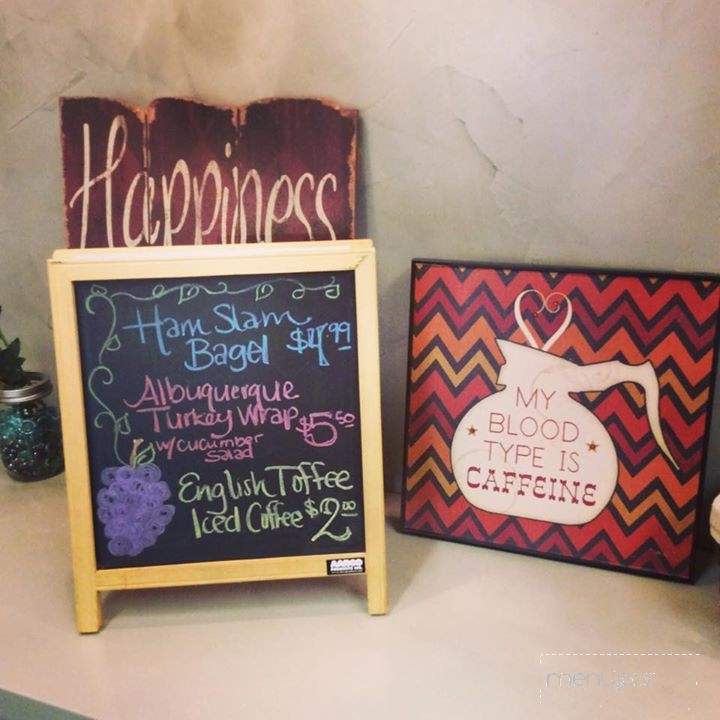 Happiness
Ham Slam
Bagel $4.99
Albuquerque
Turkey Wrap $5.50
w/cucumber
salad
English Toffee
Iced Coffee $2.00
MY
BLOOD
TYPE IS
CAFFEINE